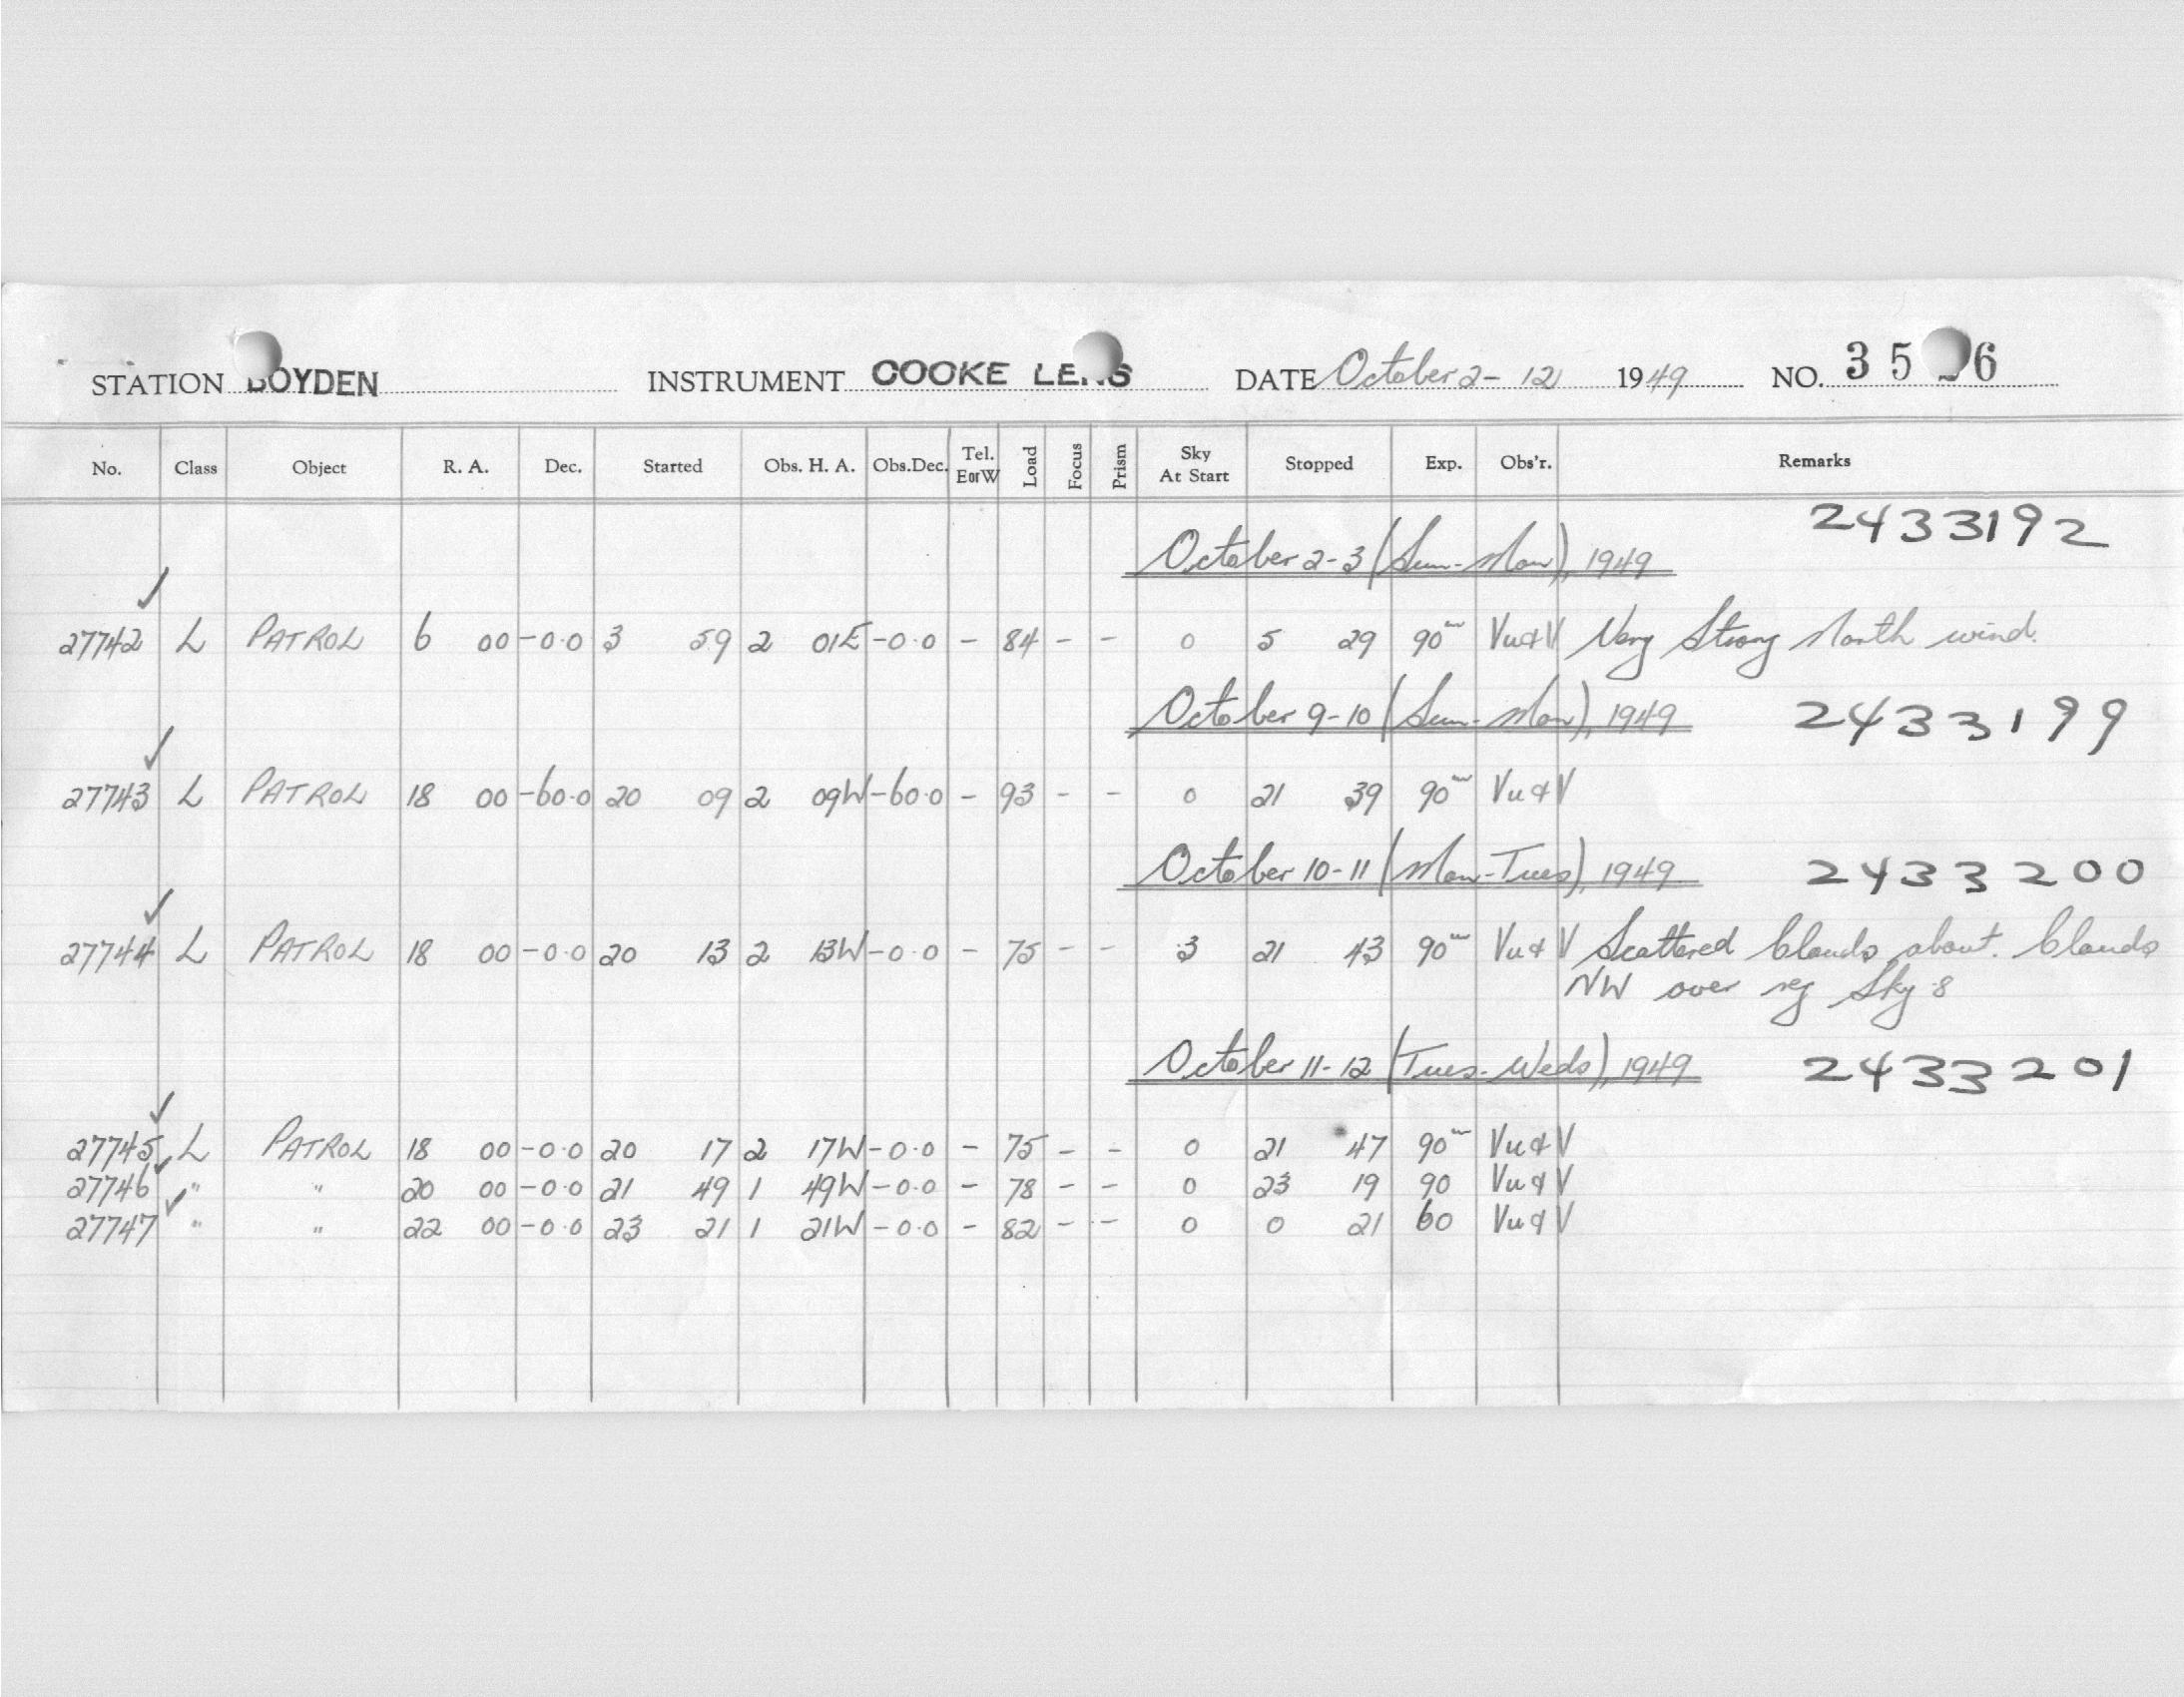 STATION BOYDEN INSTRUMENT COOKE LENS DATE October 2-12 1949 NO. 35 6
No. Class Object R. A. Dec. Started Obs. H. A. Obs.Dec. Tel. EorW Load Focus Prism Sky At Start Stopped Exp. Obs'r. Remarks
2433192
October 2-3 (Sun-Mon), 1949
✓
27742 L PATROL 6 00 -0.0 3 59 2 01E -0.0 - 84 - - 0 5 29 90m Vu&V Very Strong North wind.
October 9-10 (Sun-Mon), 1949 2433199
✓
27743 L PATROL 18 00 -60.0 20 09 2 09W -60.0 - 93 - - 0 21 39 90m Vu&V
October 10-11 (Mon-Tues), 1949 2433200
✓
27744 L PATROL 18 00 -0.0 20 13 2 13W -0.0 - 75 - - 3 21 43 90m Vu&V Scattered Clouds about. Clouds
NW over reg Sky 8
October 11-12 (Tues-Weds), 1949 2433201
✓
27745 L PATROL 18 00 -0.0 20 17 2 17W -0.0 - 75 - - 0 21 47 90m Vu&V
27746 ✓ " " 20 00 -0.0 21 49 1 49W -0.0 - 78 - - 0 23 19 90 Vu&V
27747 ✓ " " 22 00 -0.0 23 21 1 21W -0.0 - 82 - - 0 0 21 60 Vu&V